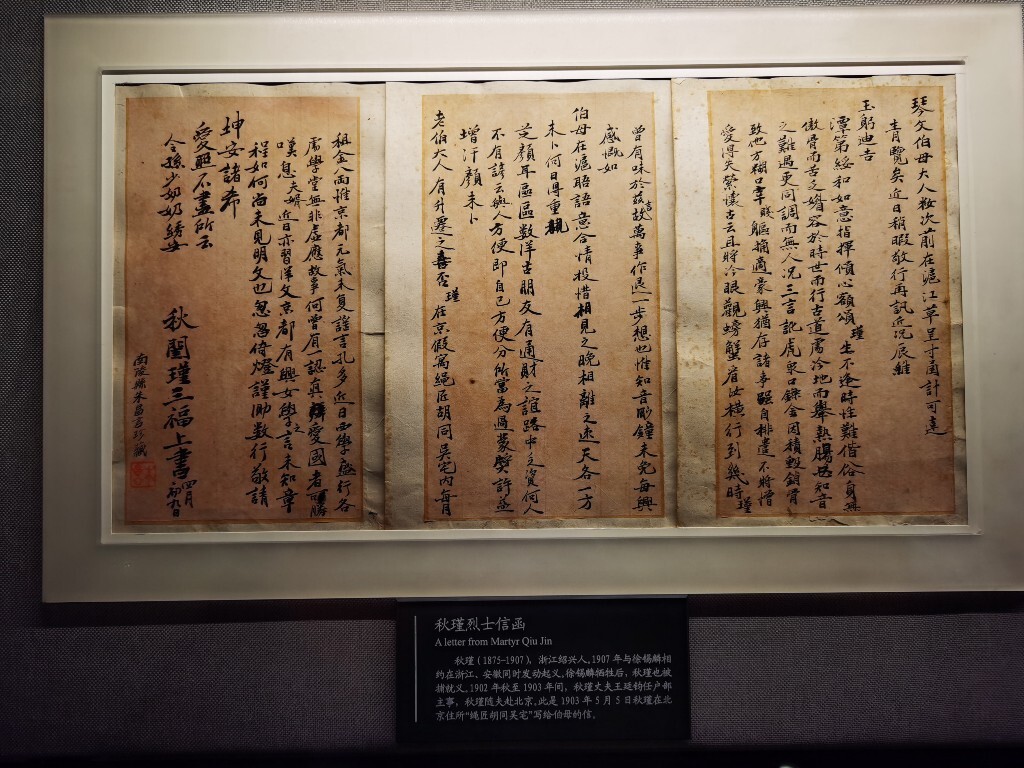 琴文伯母大人妝次前在滬江草呈寸函計可達
青覽矣近日稍暇敬行再訊近況辰維
玉躬迪吉
潭第綏和如意指揮傾心額頌瑾生不逢時性難偕俗身興
傲骨而苦乏媚容於時世而行古道處冷地而舉熱腸必知音
之難遇更同調而無人況三言訛虎衆口鑠金因積毀銷骨
致他方糊口幸賤軀摘適豪興猶存諸事強自排遣不將憎
愛得失縈懷古云且將冷眼觀螃蟹看汝橫行到幾時瑾
曾有味於茲言故萬事作退一步想也惟知音眇鐘未免每興
感慨如
伯母在滬聆語意合情投惜相見之晚相離之速天各一方
未卜何日得重親
芝顏耳區區數洋吉朋友有通財之誼路中之資何人
不有諺云與人方便即自己方便分所當為過蒙獎許益
增汗顏未卜
老伯大人有升遷之喜否瑾在京假寓繩匠胡同吳宅內每月
租金八兩惟京都元氣未復謠言孔多近日西學盛行各
處學堂無非虛應故事何曾有一認真愛國者可勝
嘆息夫壻近日亦習洋文京都有興女學之言未知章
程如何尚未見明文也忽忽倚燈謹泐數行敬請
坤安諸希
愛照不盡所云
令孫少奶奶綉安
秋閨瑾三福上書四月初九日
南陵縣朱昌言珍藏
秋瑾烈士信函
A letter from Martyr Qiu Jin
秋瑾（1875-1907），浙江绍兴人。1907年与徐锡麟相
约在浙江、安徽同时发动起义。徐锡麟牺牲后，秋瑾也被
捕就义。1902年秋至1903年间，秋瑾丈夫王廷钧任户部
主事，秋瑾随夫赴北京。此是1903年5月5日秋瑾在北
京住所“绳匠胡同吴宅”写给伯母的信。